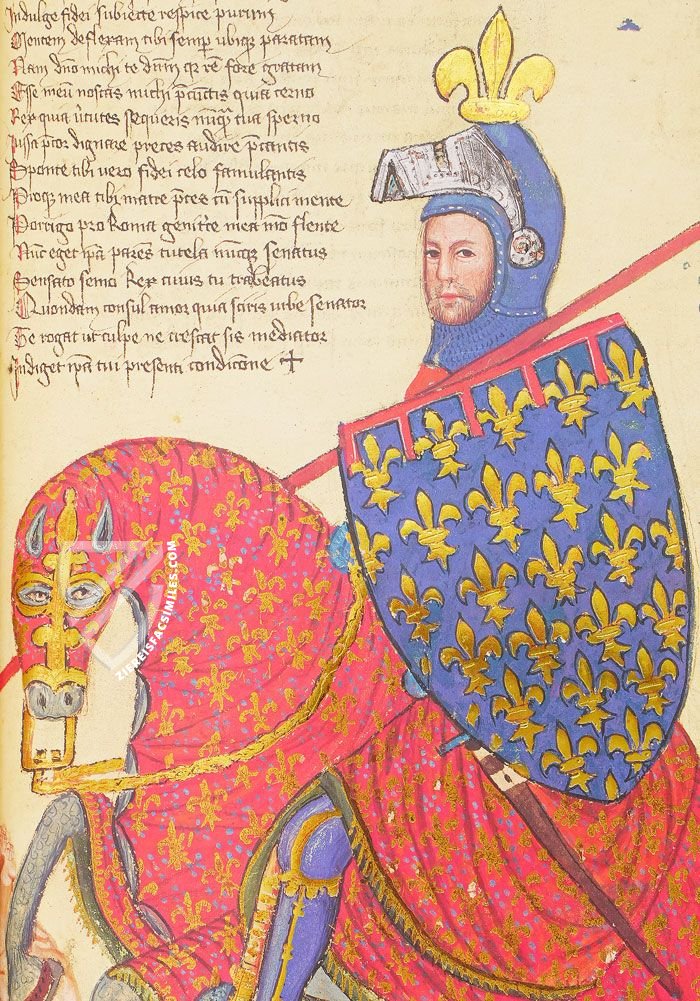 Indulge fidei subiecte respice purimi
Mentem deflexam tibi semp ubiq paratam
Nam dno michi te dnm qr rē fore gratam
Esse meū nostas michi pcunctis quia cerno
Rex qua v̄tutes sequeris nūq tua sperno
Jussa pcor dignare preces audire pcantis
Sponte tibi vero fidei celo famulantis
Pioq mea tibi matre pces cū supplici mente
Porrigo pro Roma genitͥce mea mō flente
Nūc eget ipā parēs tutela nūcq senatus
Sensato semo Rex cuius tu trabeatus
Quondam consul amor quia scriris urbe senator
Te rogat ut culpe ne crescat sis mediator
Indiget ipā tui presenti condicōne +
ZIEREISFACSIMILES.COM